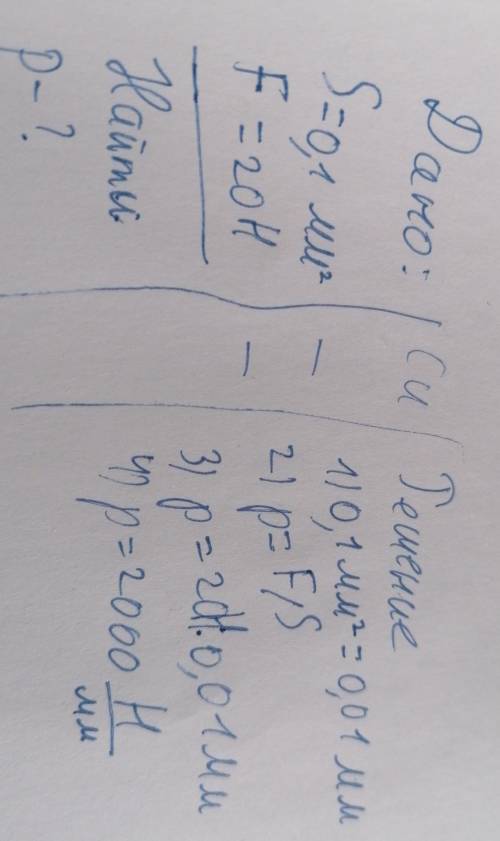 Дано:
S=0,1 мм²
F = 20H
Найти
P-?
Си
–
–
Решение
1) 0,1 мм² = 0,01 мм
2) p= F/S
3) p = 20H:0,01 мм
4) p = 2000 H/мм